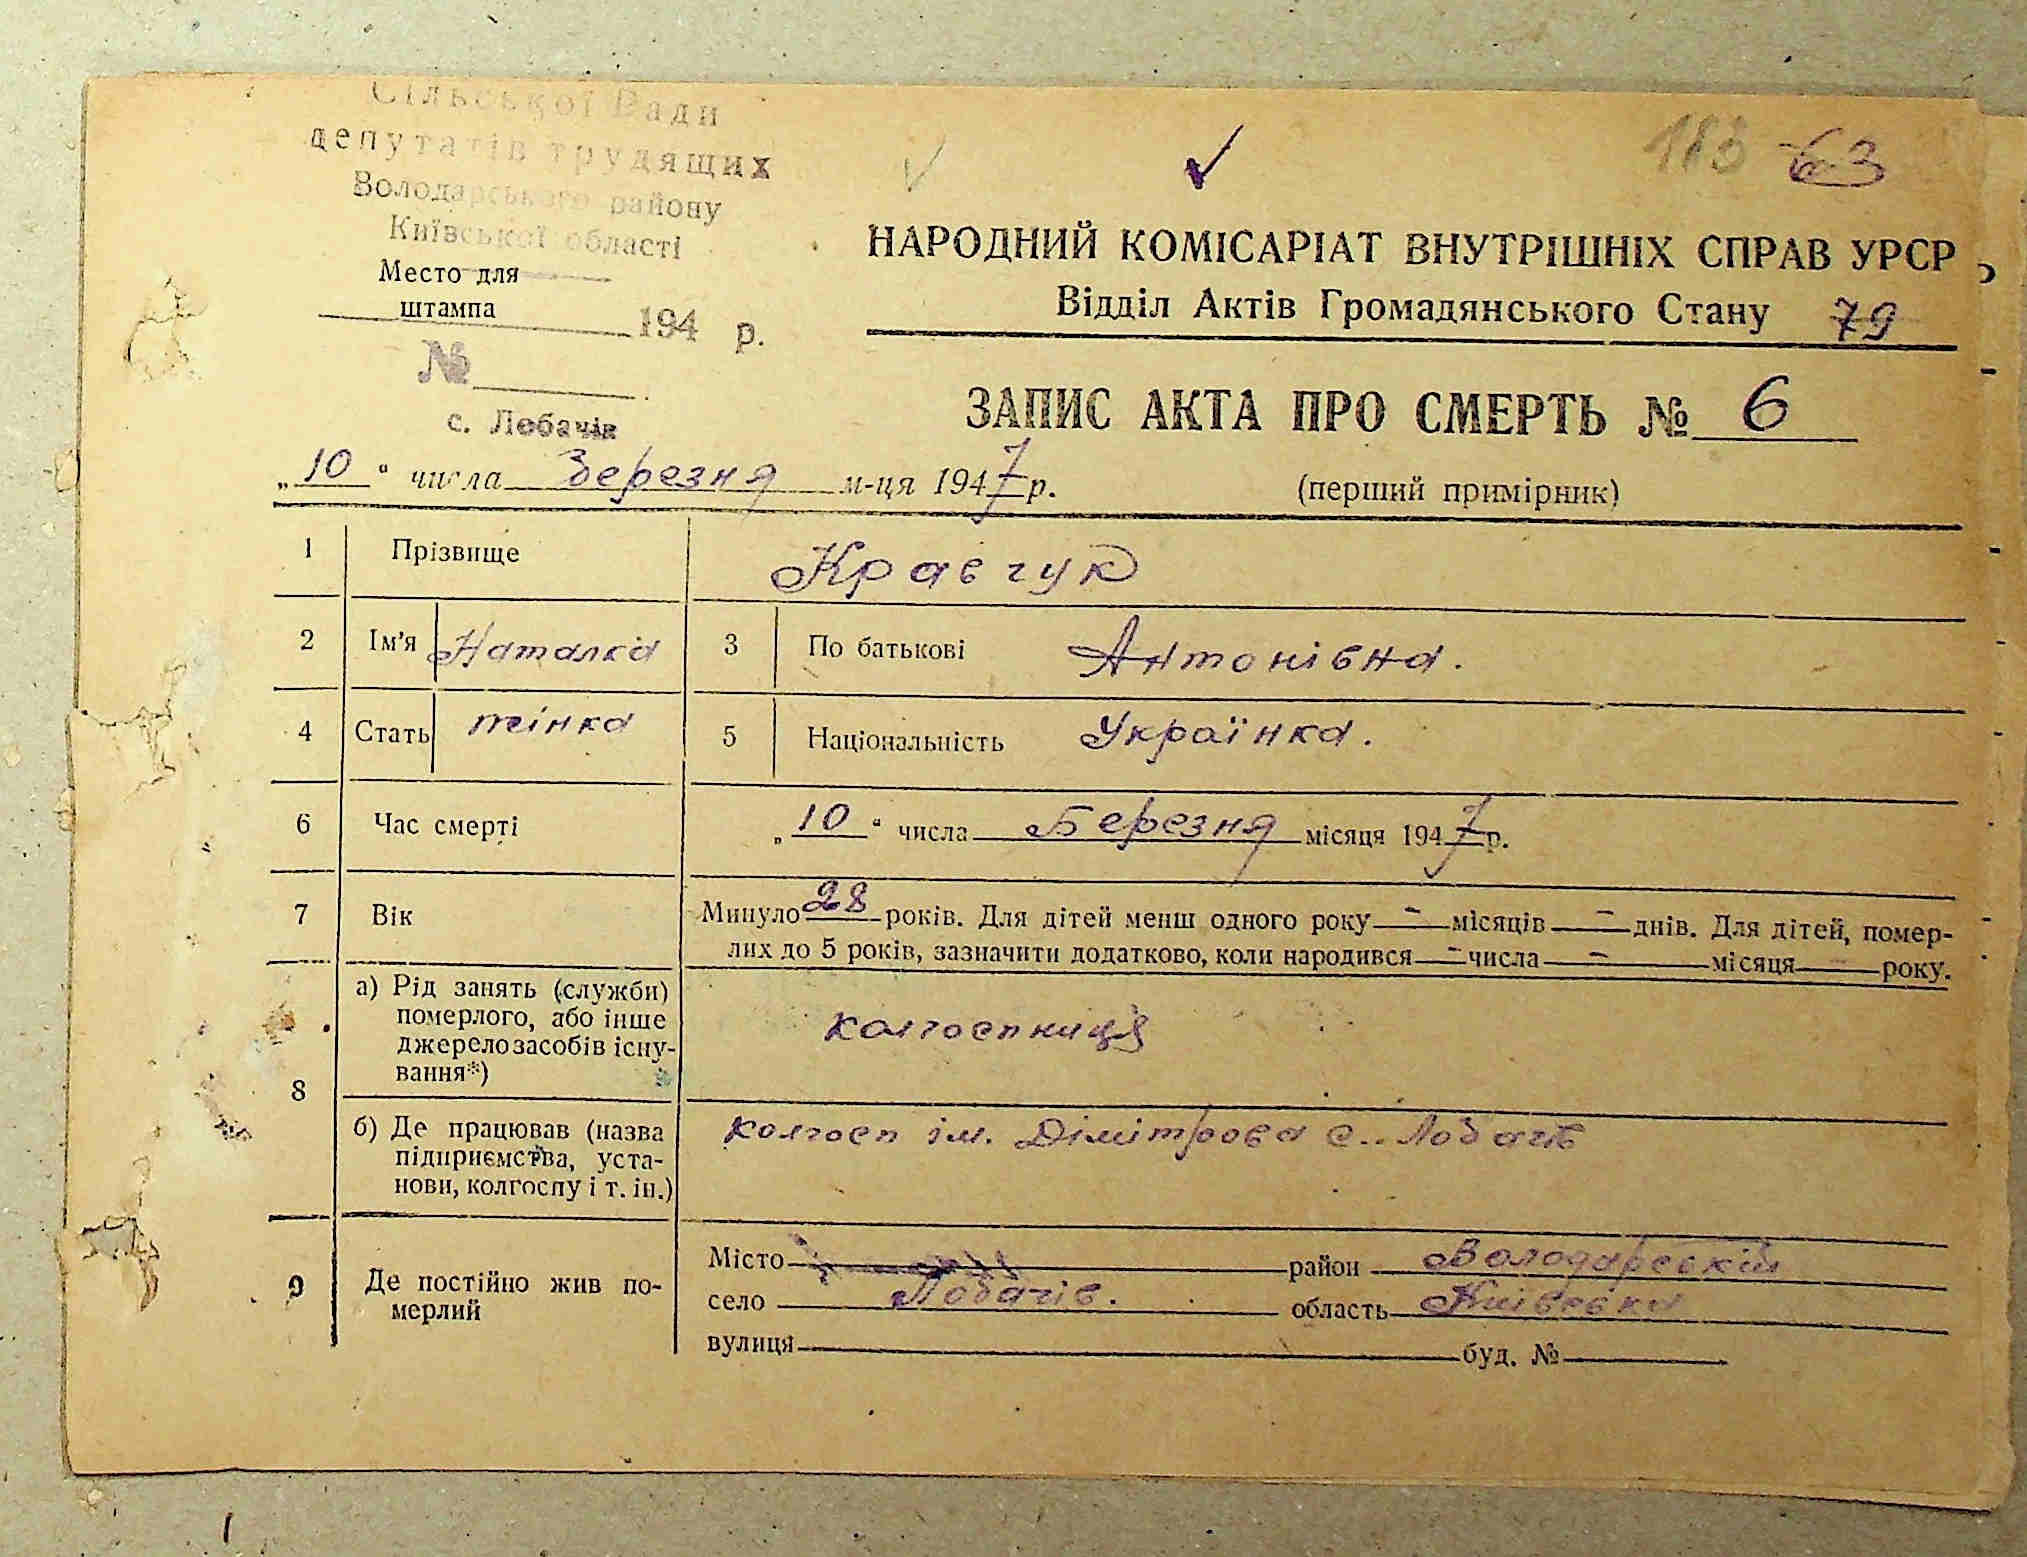 Сільської Ради
депутатів трудящих
Володарського району
Київської області
Место для
штампа
194 р.
№
с. Лобачів
183 63
НАРОДНИЙ КОМІСАРІАТ ВНУТРІШНІХ СПРАВ УРСР
Відділ Актів Громадянського Стану 79
ЗАПИС АКТА ПРО СМЕРТЬ № 6
„10“ числа Березня м-ця 1947 р.
(перший примірник)
1 Прізвище Кравчук
2 Ім'я Наталка 3 По батькові Антонівна.
4 Стать жінка 5 Національність Українка.
6 Час смерті „10“ числа Березня місяця 1947 р.
7 Вік Минуло 28 років. Для дітей менш одного року — місяців — днів. Для дітей, помер-
лих до 5 років, зазначити додатково, коли народився — числа — місяця року.
8 а) Рід занять (служби)
померлого, або інше
джерело засобів існу-
вання*)
колгоспниця
б) Де працював (назва
підприємства, уста-
нови, колгоспу і т. ін.)
колгосп ім. Дімітрова с. Лобачів
9 Де постійно жив по-
мерлий
Місто район Володарський
село Лобачів. область Київська
вулиця буд. №